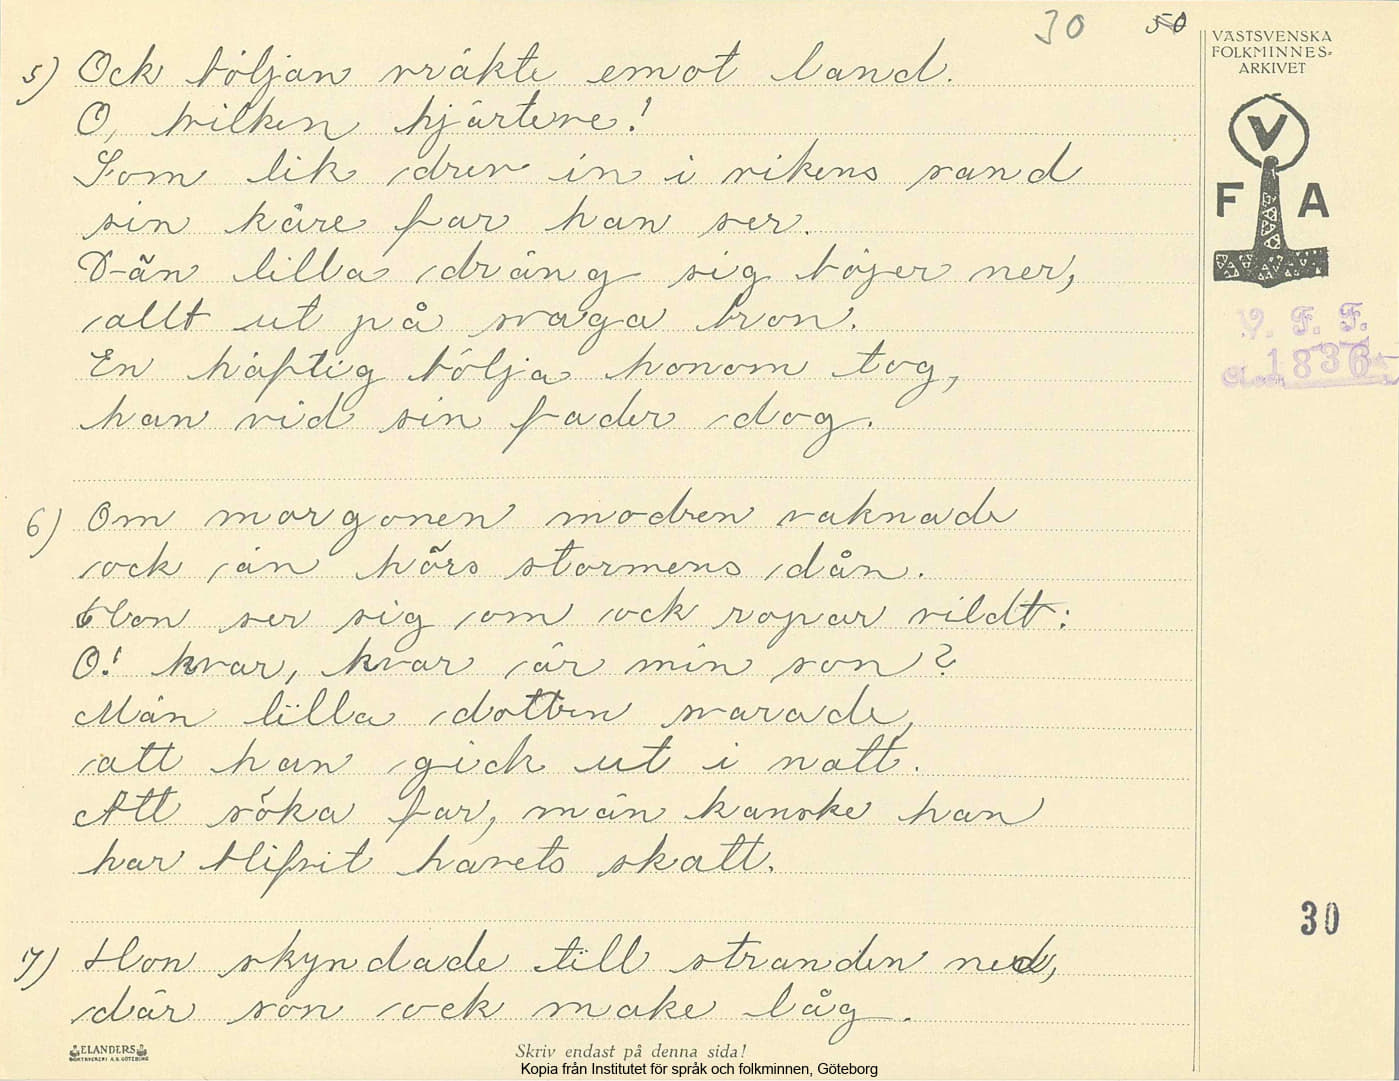 30 50
VÄSTSVENSKA
FOLKMINNES-
ARKIVET
V
F A
V. F. F.
1836
5) Ock böljan vräkte emot land.
O, hvilken hjärteve!
Som lik drev in i vikens rand
sin käre far han ser.
Vän lilla dräng sig böjer ner,
allt ut på svaga bron.
En häftig bölja honom tog,
han vid sin fader dog.
6) Om morgonen modren vaknade
ock än hörs stormens dån.
Hon ser sig om ock ropar vildt:
O! hvar, hvar är min son?
Män lilla dottern svarade,
att han gick ut i natt.
Att söka far, män kanske han
har blifvit havets skatt.
30
7) Hon skyndade till stranden ned,
där son ock make låg.
ELANDERS
BOKTRYCKERI A.B. GÖTEBORG
Skriv endast på denna sida!
Kopia från Institutet för språk och folkminnen, Göteborg